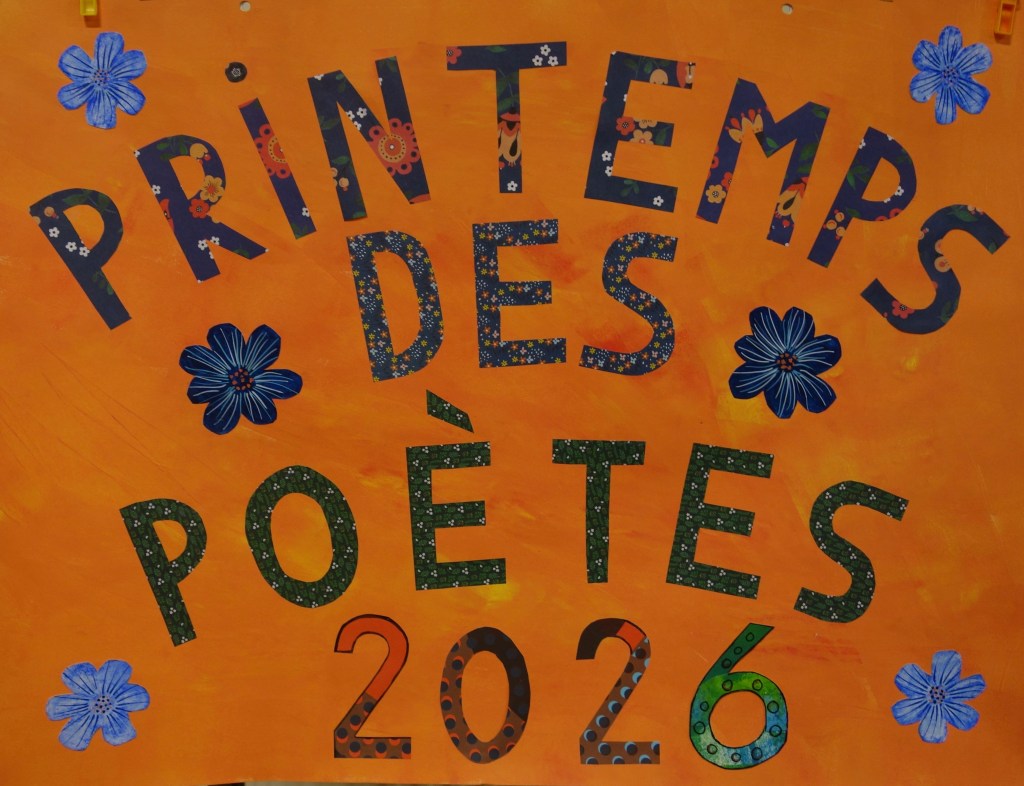 PRiNTEMPS
DES
POÈTES
2026